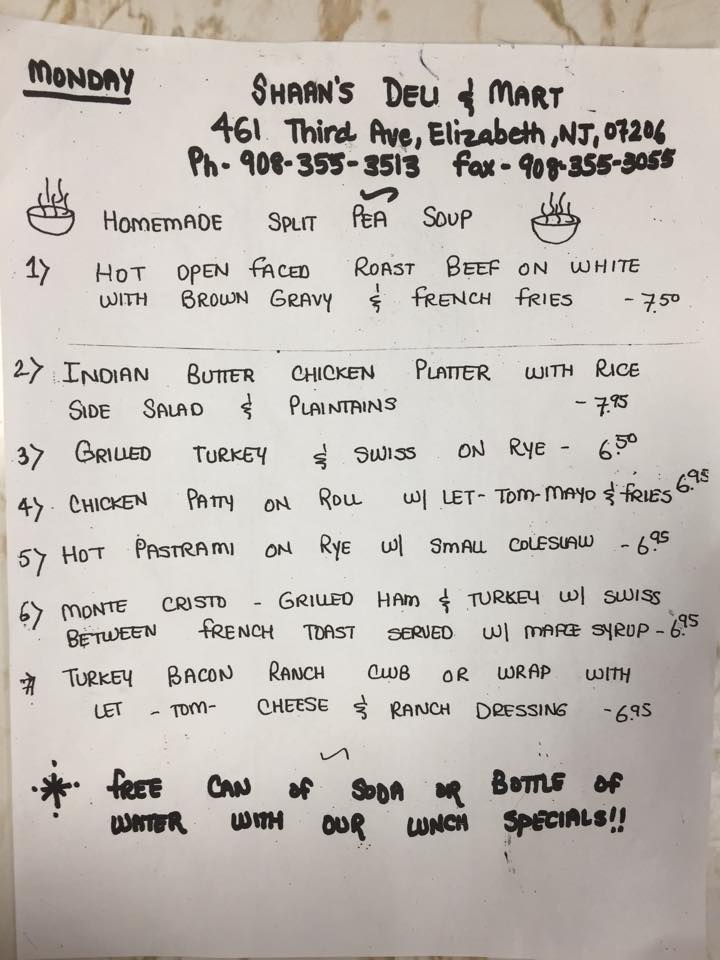 MONDAY
SHAAN'S DELI & MART
461 Third Ave, Elizabeth, NJ, 07206
Ph- 908-355-3513 fax- 908-355-3055
HOMEMADE SPLIT PEA SOUP
1) HOT OPEN FACED ROAST BEEF ON WHITE
WITH BROWN GRAVY & FRENCH FRIES - 7.50
2) INDIAN BUTTER CHICKEN PLATTER WITH RICE
SIDE SALAD & PLAINTAINS - 7.95
3) GRILLED TURKEY & SWISS ON RYE - 6.50
4) CHICKEN PATTY ON ROLL W/ LET-TOM-MAYO & FRIES 6.95
5) HOT PASTRAMI ON RYE W/ SMALL COLESLAW - 6.95
6) MONTE CRISTO - GRILLED HAM & TURKEY W/ SWISS
BETWEEN FRENCH TOAST SERVED W/ MAPLE SYRUP - 6.95
7) TURKEY BACON RANCH CLUB OR WRAP WITH
LET - TOM - CHEESE & RANCH DRESSING - 6.95
* FREE CAN OF SODA OR BOTTLE OF
WATER WITH OUR LUNCH SPECIALS!!